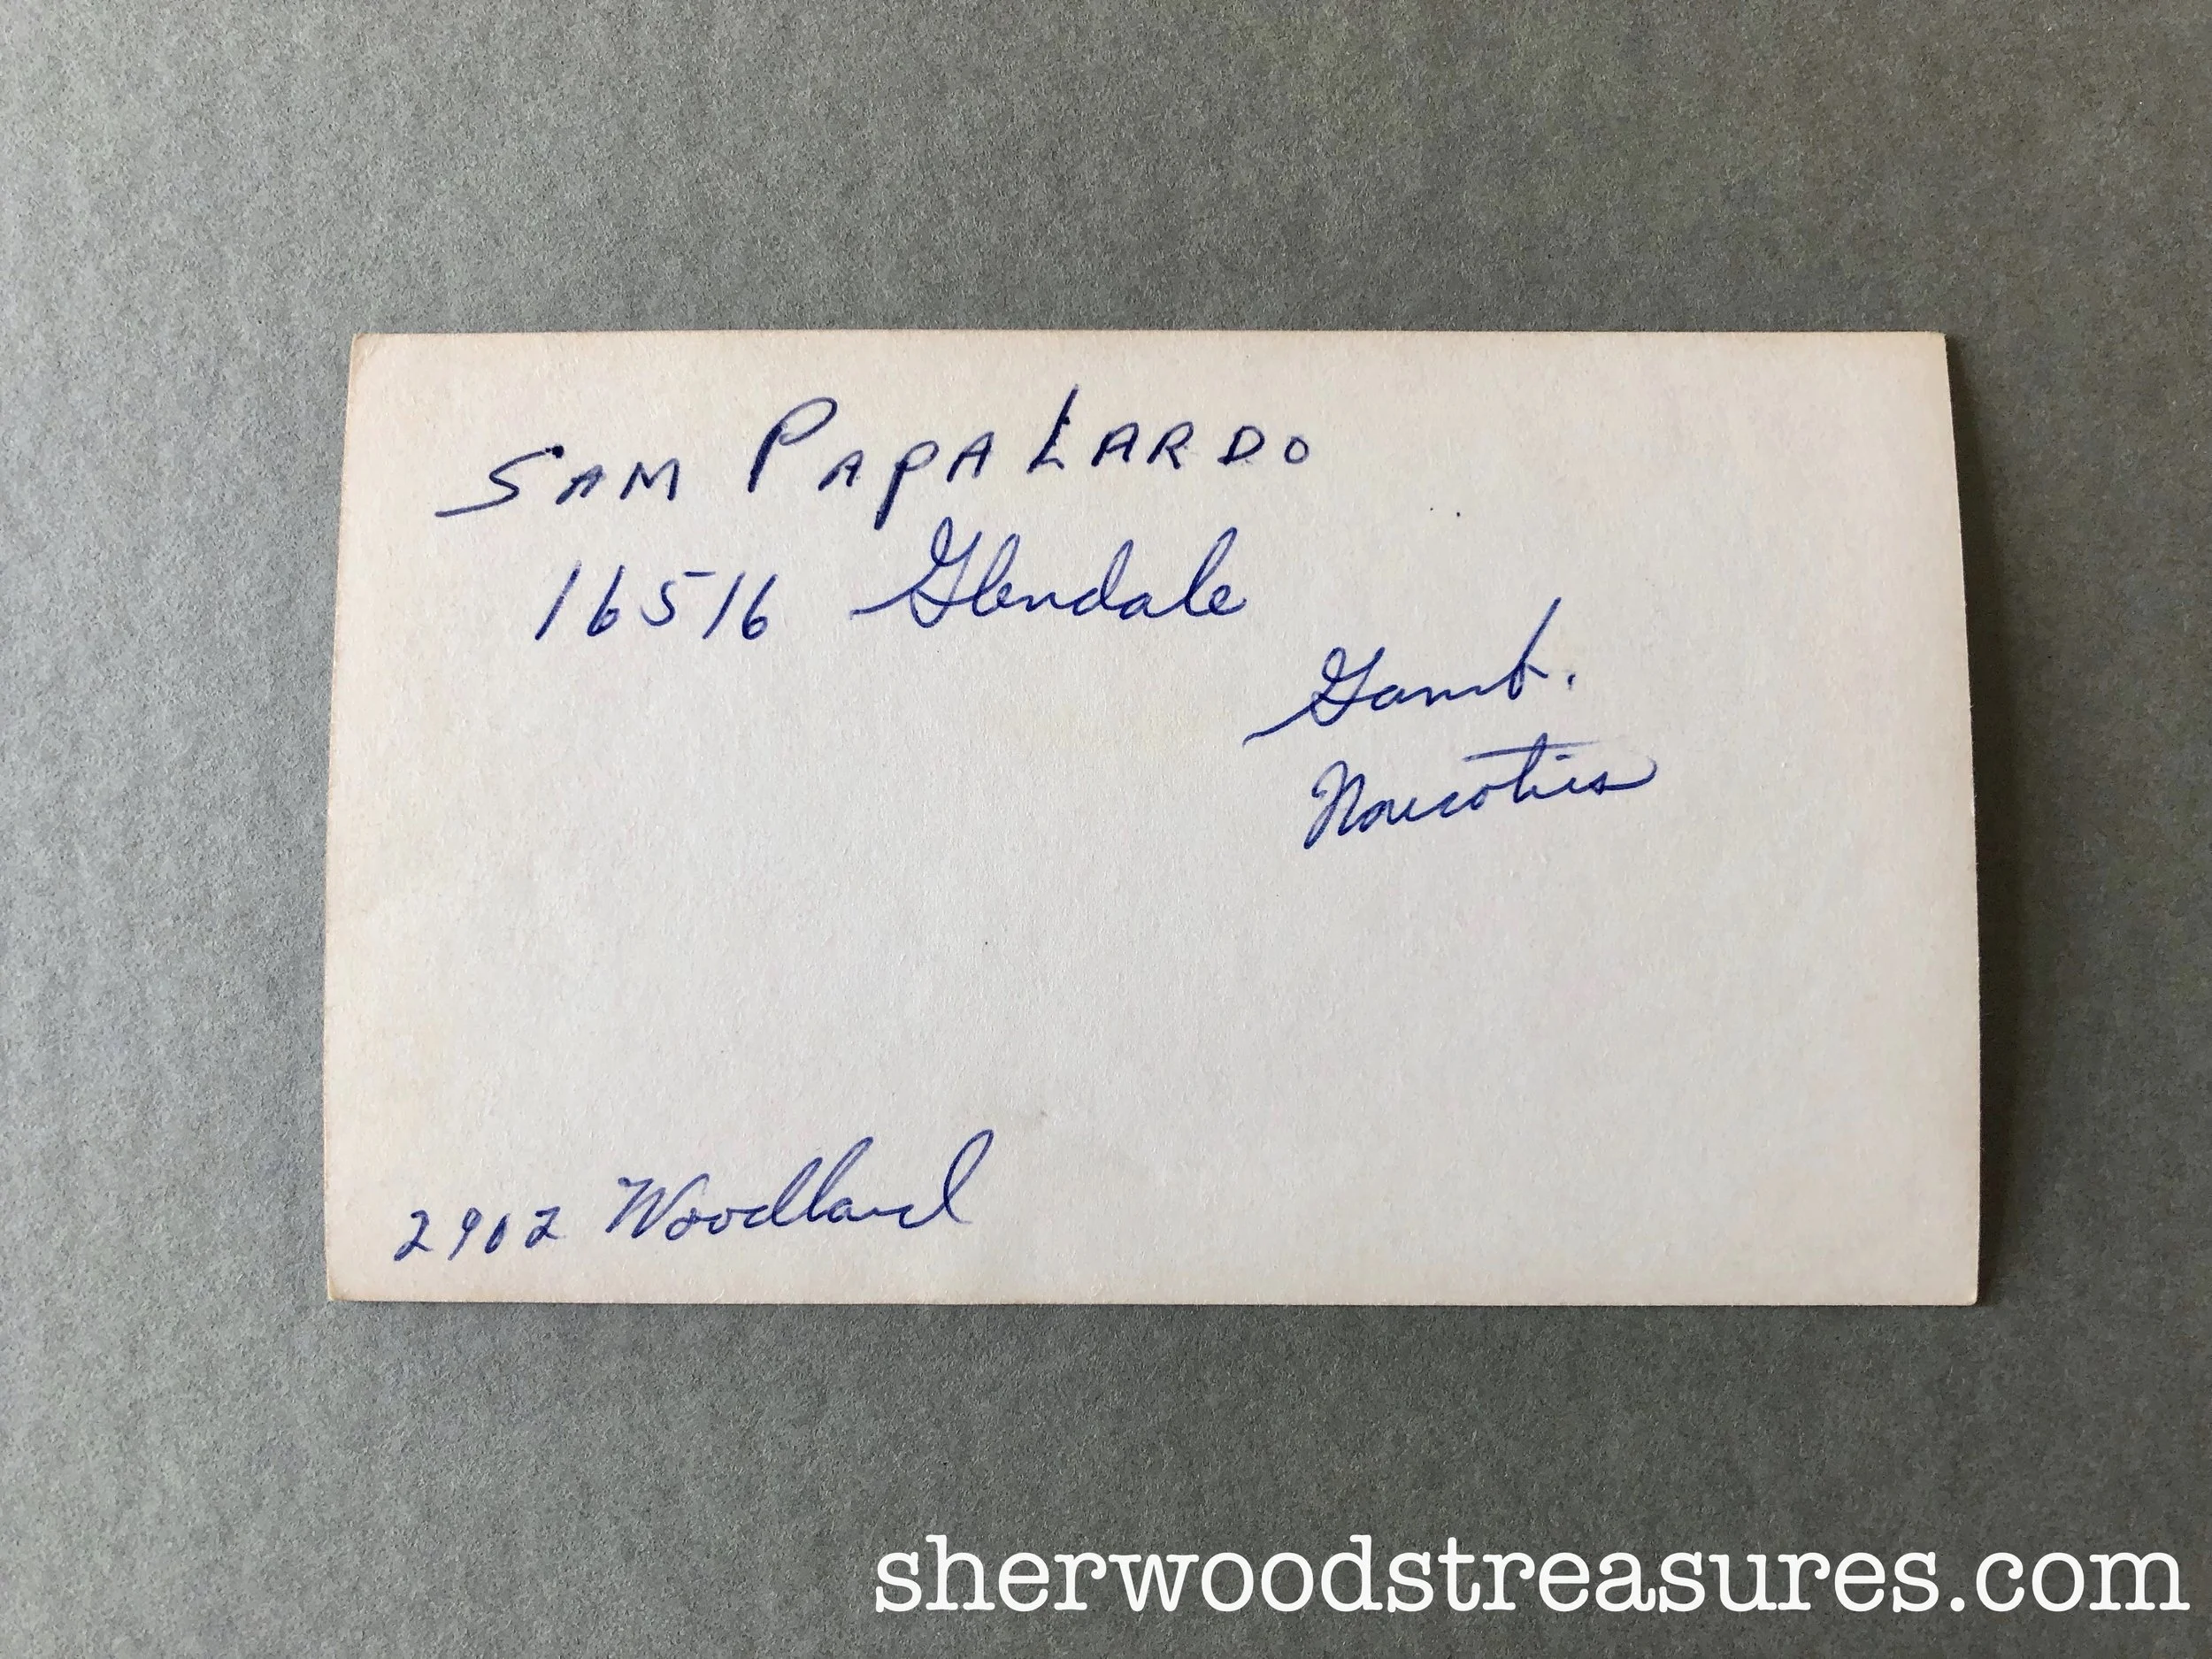 SAM PAPALARDO
16516 Glendale
Gamb.
Narcotics
2902 Woodland
sherwoodstreasures.com